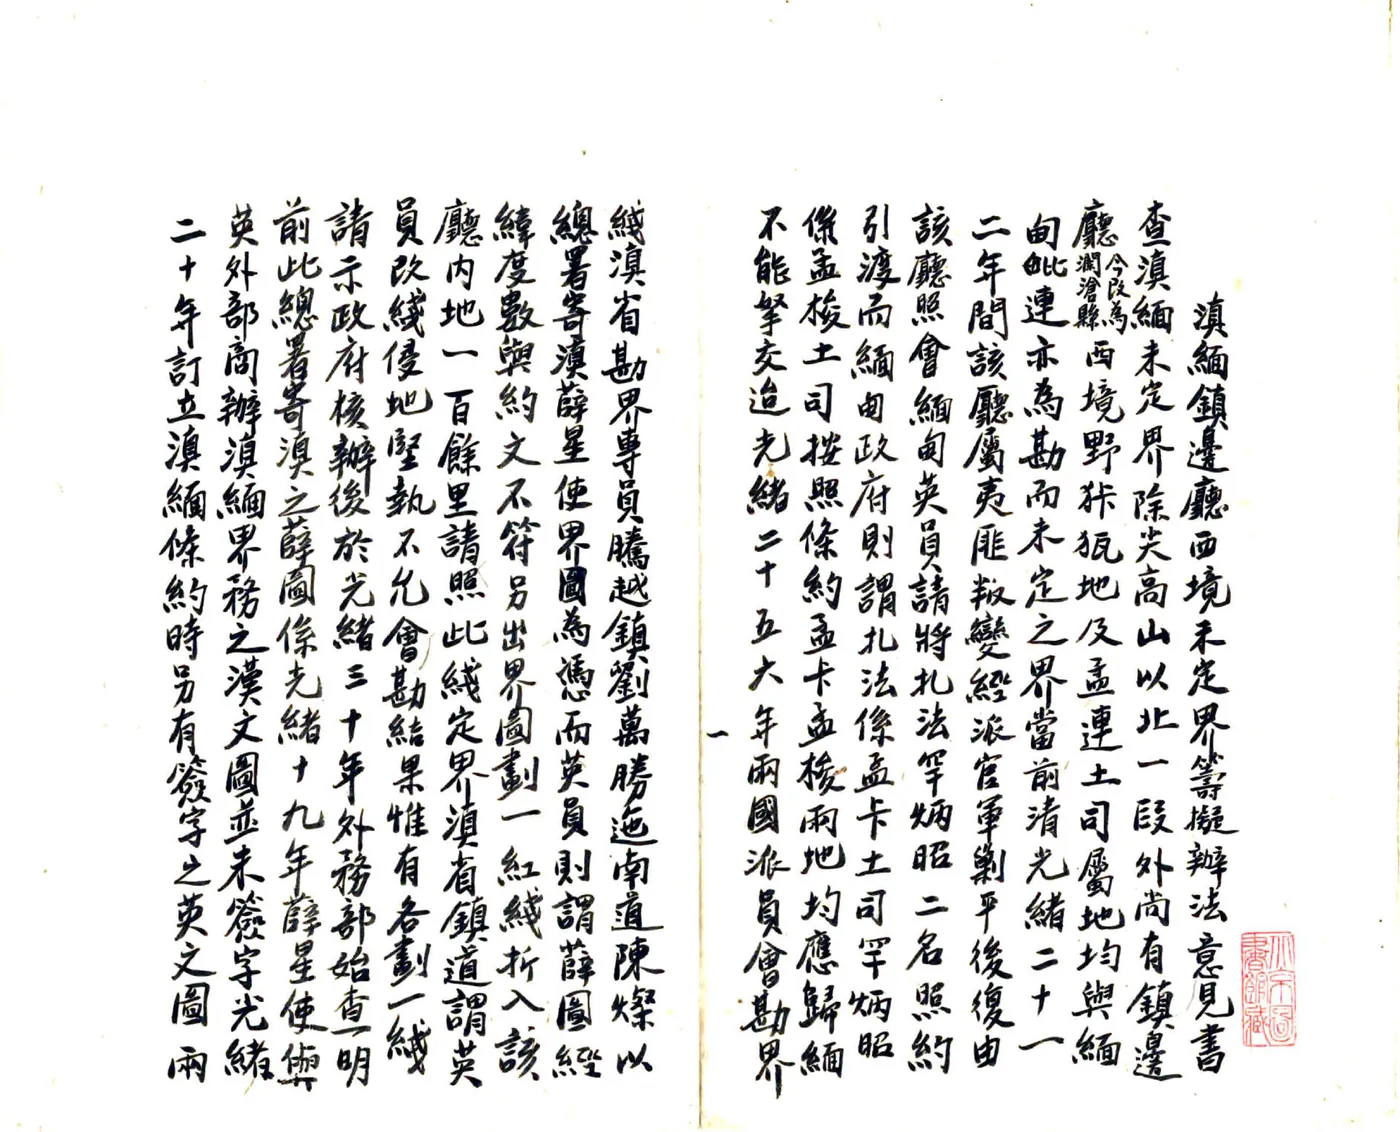 滇緬鎮邊廳西境未定界籌擬辦法意見書
查滇緬未定界除尖高山以北一段外尚有鎮邊
廳今改為瀾滄縣西境野狇狐地及孟連土司屬地均與緬
甸毗連亦為勘而未定之界當前清光緒二十一
二年間該廳屬夷匪叛變經派官軍剿平後復由
該廳照會緬甸英員請將扎法罕炳昭二名照約
引渡而緬甸政府則謂扎法係孟卡土司罕炳昭
係孟梭土司按照條約孟卡孟梭兩地均應歸緬
不能拏交迨光緒二十五六年兩國派員會勘界
一
綫滇省勘界專員騰越鎮劉萬勝迤南道陳燦以
總署寄滇薛星使界圖為憑而英員則謂薛圖經
緯度數與約文不符另出界圖劃一紅綫折入該
廳內地一百餘里請照此綫定界滇省鎮道謂英
員改綫侵地堅執不允會勘結果惟有各劃一綫
請示政府核辦後於光緒三十年外務部始查明
前此總署寄滇之薛圖係光緒十九年薛星使與
英外部商辦滇緬界務之漢文圖並未簽字光緒
二十年訂立滇緬條約時另有簽字之英文圖兩